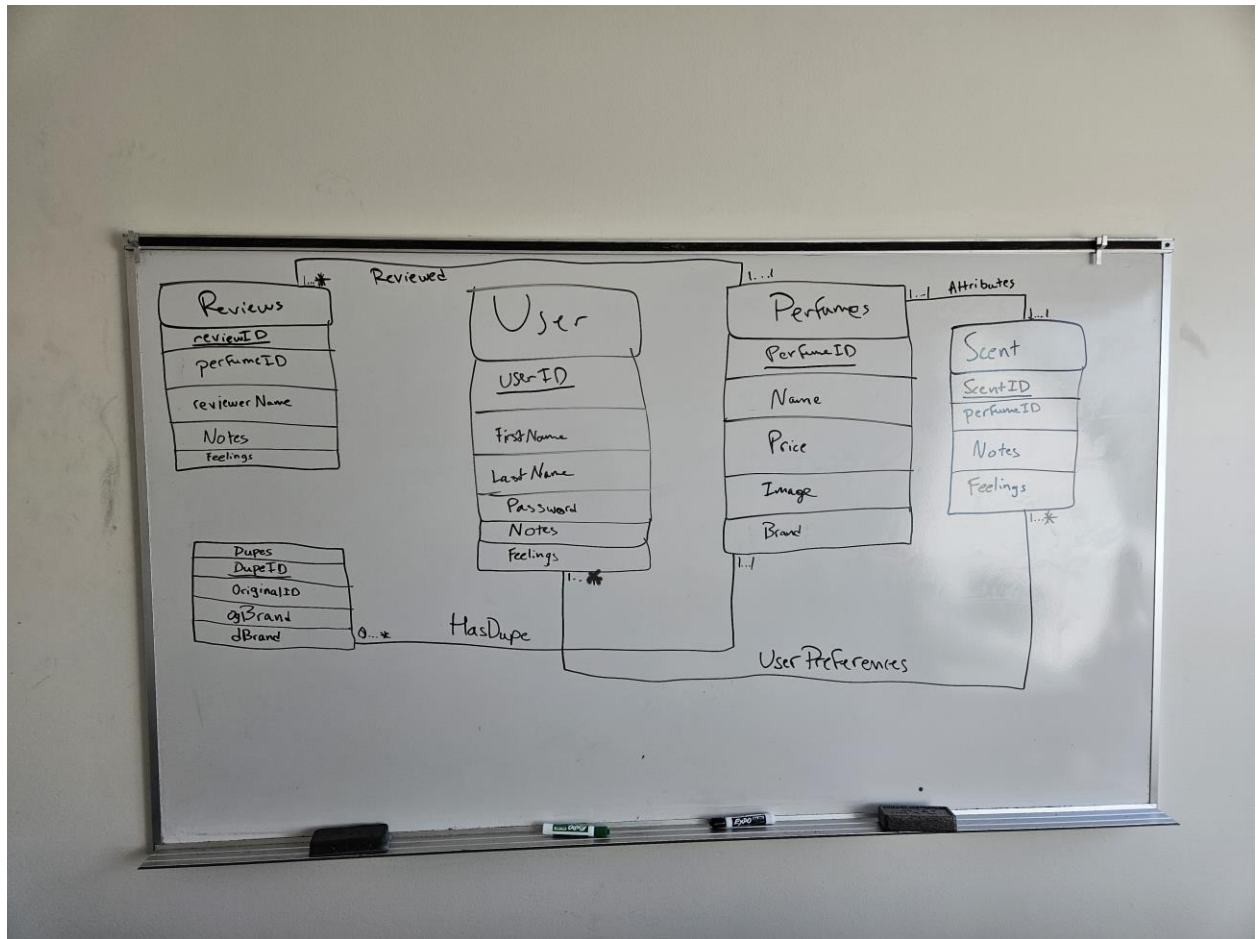 1...*
Reviewed
1...1
Reviews
reviewID
perfumeID
reviewerName
Notes
Feelings
User
UserID
FirstName
LastName
Password
Notes
Feelings
1...*
Perfumes
PerfumeID
Name
Price
Image
Brand
1...1
1...1
Attributes
1...1
Scent
ScentID
perfumeID
Notes
Feelings
1...*
Dupes
DupeID
OriginalID
ogBrand
dBrand
0...*
HasDupe
UserPreferences
EXPO
EXPO